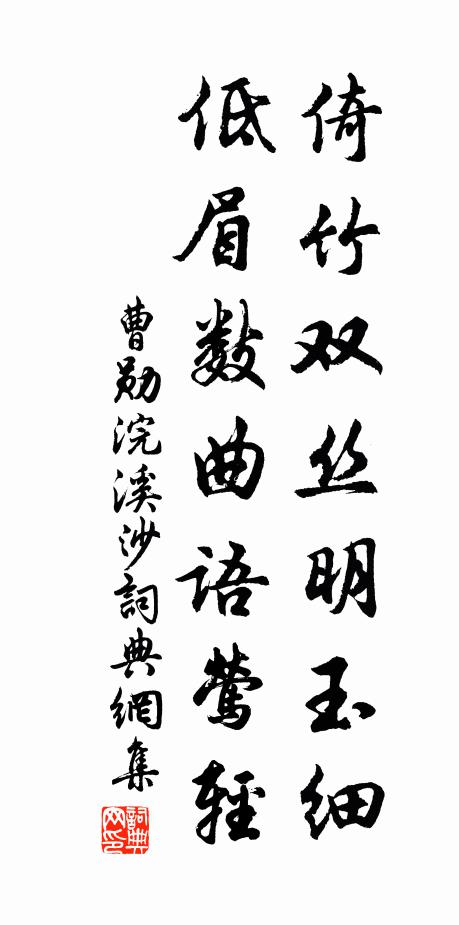 倚竹双丝明玉细
低眉数曲语莺轻
曹勋浣溪沙詞典網集
詞典网印